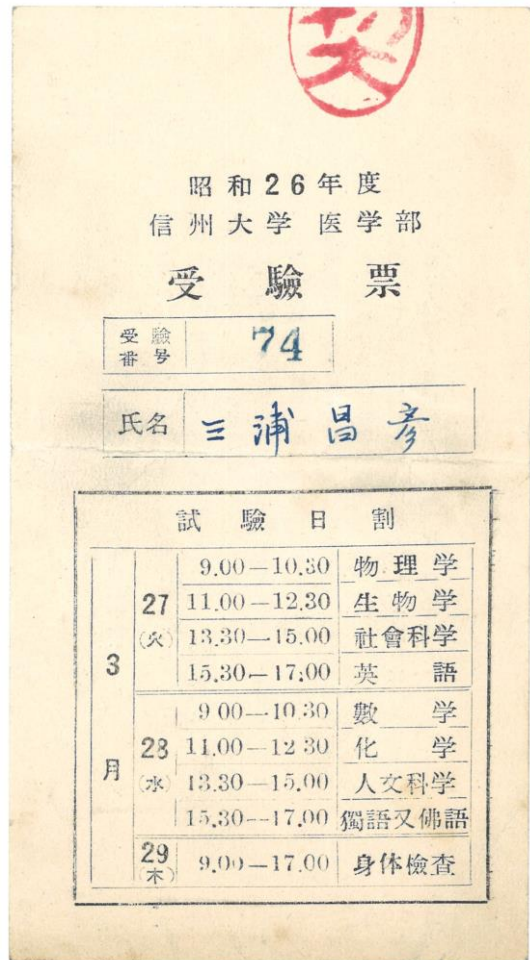 契
昭和26年度
信州大学 医学部
受驗票
受驗番号 74
氏名 三浦昌彦
試驗日割
3月
27(火)
9.00—10.30 物理学
11.00—12.30 生物学
13.30—15.00 社會科学
15.30—17.00 英語
28(水)
9 00—10.30 數学
11.00—12 30 化学
13.30—15.00 人文科学
15.30—17.00 獨語又佛語
29(木)
9.00—17.00 身体檢査